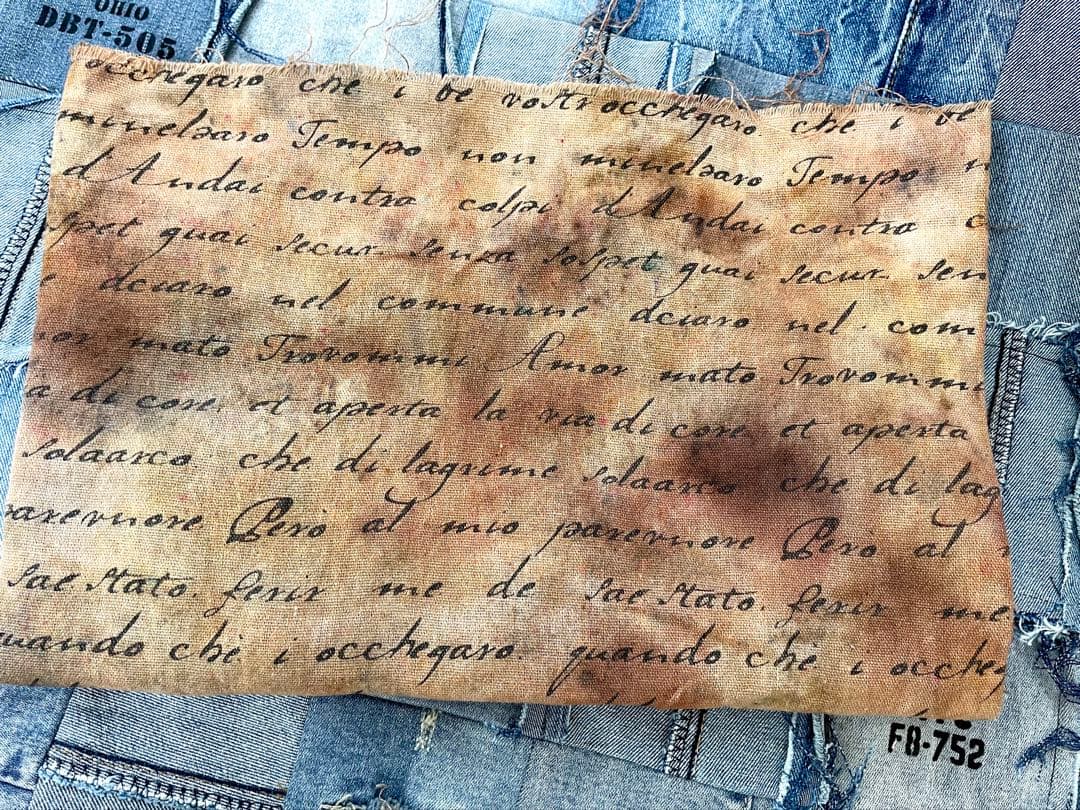 OHIO
DBT-505
occhegaro che i be vostr occhegaro che i be
minelsaro Tempo non minelsaro Tempo n
d'Andai contra colpi d'Andai contra c
spet guai secur senza sospet guai secur sen
e dciaro nel commune dciaro nel com
or mato Trovommi Amor mato Trovommi
a di core et aperta la via di core et aperta
solaarco che di lagrime solaarco che di lag
parervnore Però al mio parervnore Però al
sae stato. ferir me de sae stato. ferir me
quando che i occhegaro quando che i occheg
FB-752